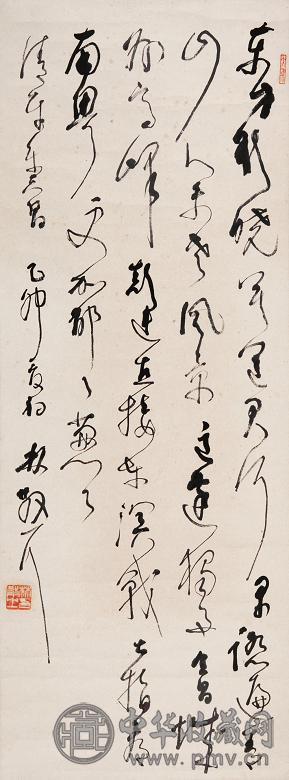 东方欲晓莫道君行早踏遍青
山人未老风景这边独好会昌城
外高峰颠连直接东溟战士指看
南粤更加郁々葱々
清平乐会昌 乙卯 林散耳
中华收藏网
www.pmv.cn